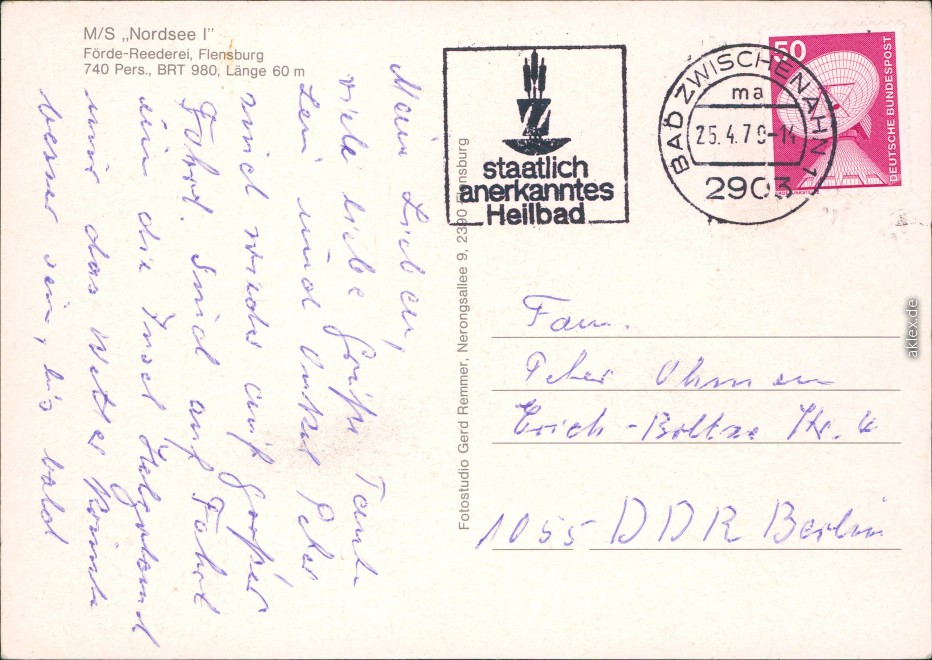 M/S „Nordsee I"
Förde-Reederei, Flensburg
740 Pers., BRT 980, Länge 60 m
Mein Lieben,
viele liebe Grüße Tante
Leni und Onkel Peter
sind wieder auf großer
Fahrt. Sind auf Fahrt
um die Insel Helgoland
nur das Wetter könnte
besser sein, bis bald
Fotostudio Gerd Remmer, Nerongsallee 9, 2390 Flensburg
staatlich
anerkanntes
Heilbad
BAD ZWISCHENAHN 1
ma
25.4.79-14
2903
50
DEUTSCHE BUNDESPOST
Fam.
Peter Ohmsen
Erich-Boltze Str. 4
1055 DDR Berlin
aklex.de